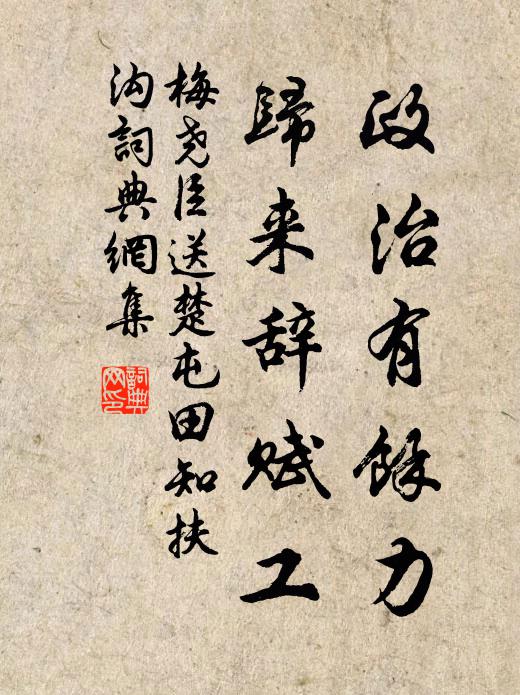 政治有餘力
歸来辞赋工
梅尧臣送楚屯田知扶
沟詞典網集
詞典網印